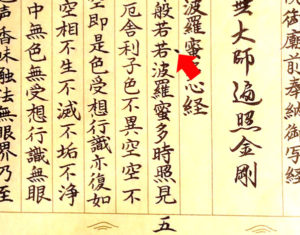 廟前奉納御写経
大師遍照金剛
波羅蜜心経
般若若波羅蜜多時照見
厄舎利子色不異空空不
空即是色受想行識亦復如
空相不生不滅不垢不浄
中無色無受想行識無眼
声香味触法無眼界乃至
五